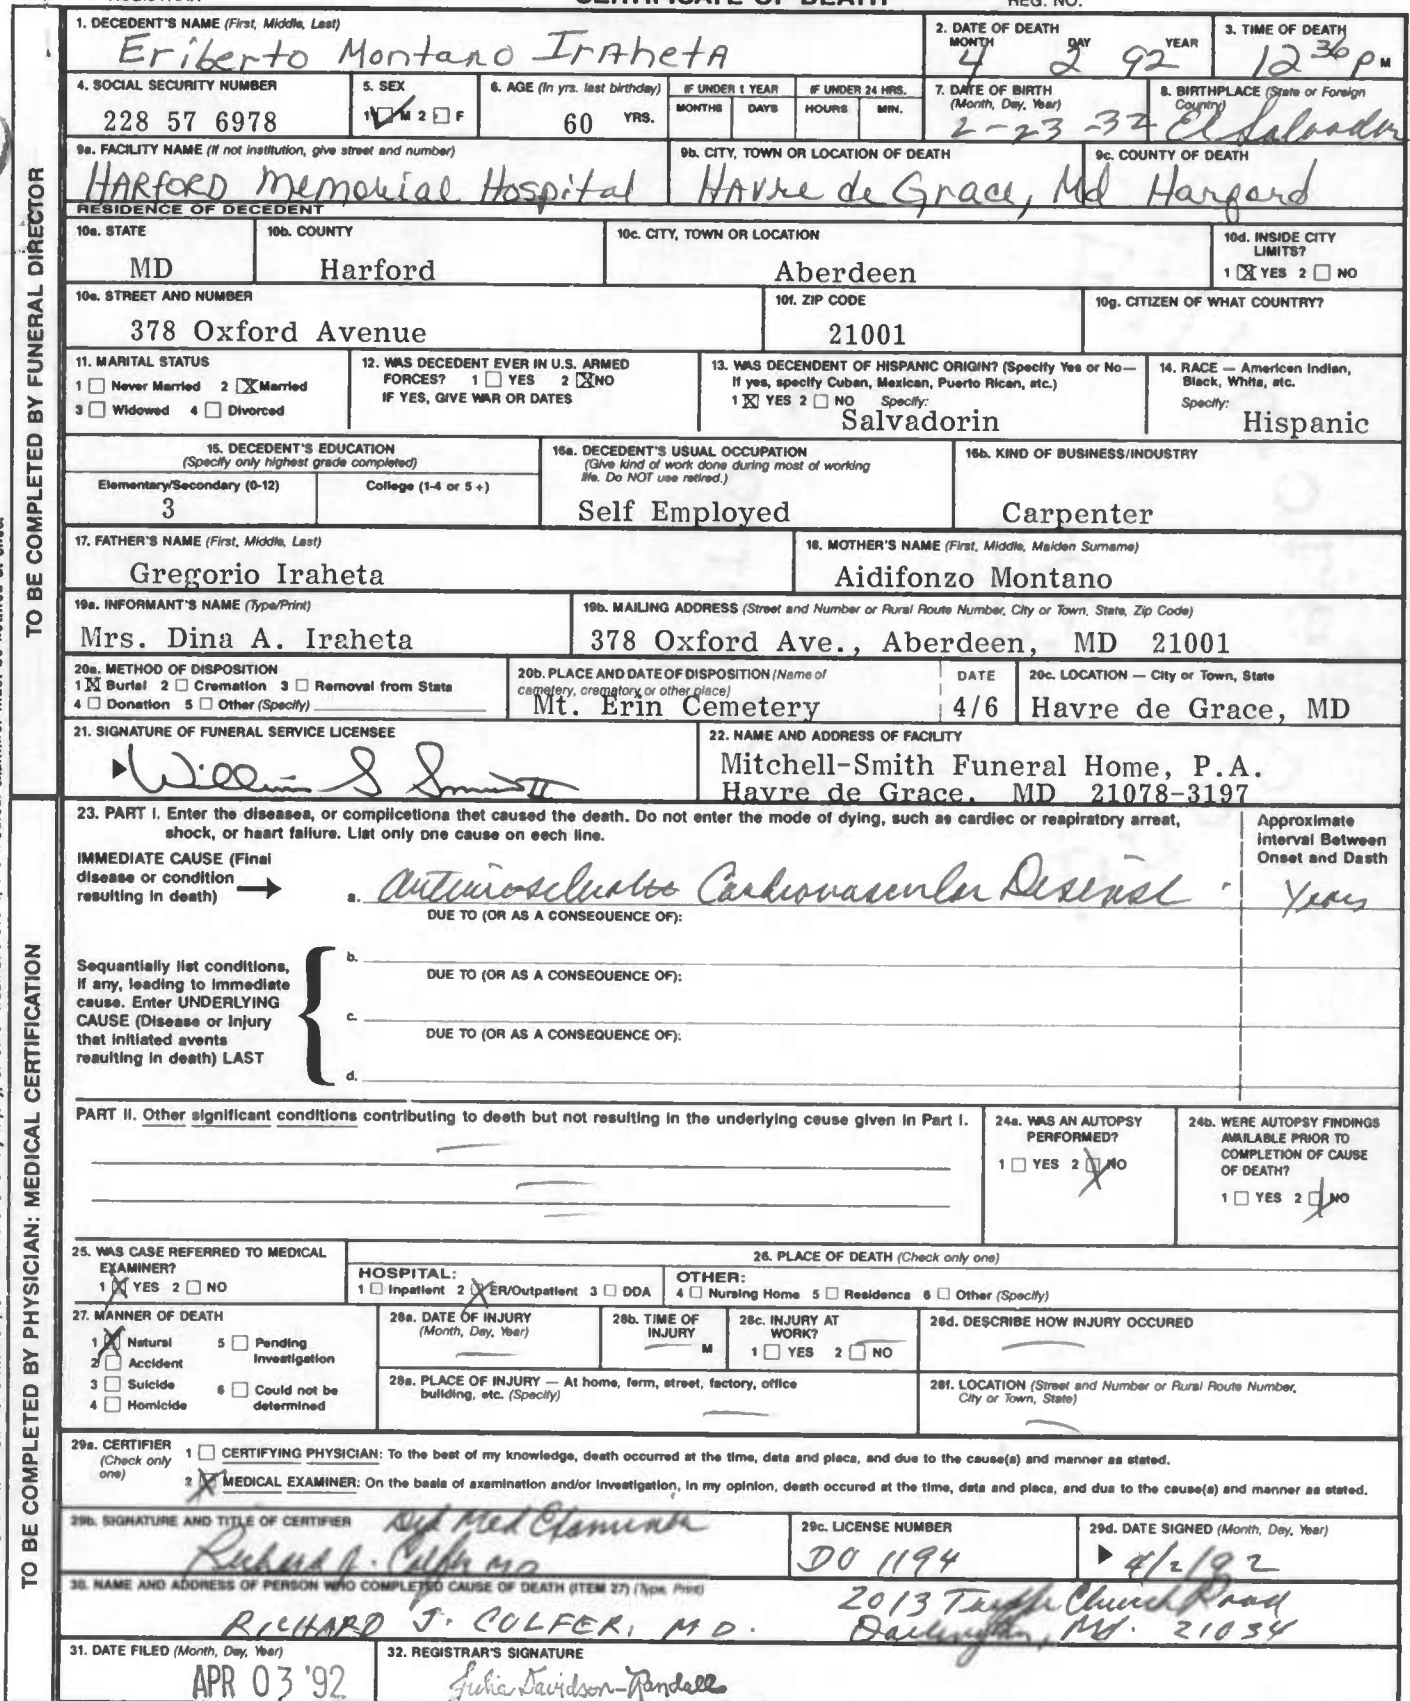 CERTIFICATE OF DEATH
REG. NO.
1. DECEDENT'S NAME (First, Middle, Last)
Eriberto Montano IrAhetA
2. DATE OF DEATH
MONTH DAY YEAR
4 2 92
3. TIME OF DEATH
12 36 P M
4. SOCIAL SECURITY NUMBER
228 57 6978
5. SEX
1 M 2 F
6. AGE (In yrs. last birthday)
60 YRS.
IF UNDER 1 YEAR
MONTHS DAYS
IF UNDER 24 HRS.
HOURS MIN.
7. DATE OF BIRTH
(Month, Day, Year)
2-23-32
8. BIRTHPLACE (State or Foreign
Country)
El Salvador
9a. FACILITY NAME (If not institution, give street and number)
HARFORD Memorial Hospital
9b. CITY, TOWN OR LOCATION OF DEATH
HAVre de Grace, Md
9c. COUNTY OF DEATH
Harford
RESIDENCE OF DECEDENT
10a. STATE
MD
10b. COUNTY
Harford
10c. CITY, TOWN OR LOCATION
Aberdeen
10d. INSIDE CITY
LIMITS?
1 X YES 2 NO
10e. STREET AND NUMBER
378 Oxford Avenue
10f. ZIP CODE
21001
10g. CITIZEN OF WHAT COUNTRY?
11. MARITAL STATUS
1 Never Married 2 X Married
3 Widowed 4 Divorced
12. WAS DECEDENT EVER IN U.S. ARMED
FORCES? 1 YES 2 X NO
IF YES, GIVE WAR OR DATES
13. WAS DECENDENT OF HISPANIC ORIGIN? (Specify Yes or No—
If yes, specify Cuban, Mexican, Puerto Rican, etc.)
1 X YES 2 NO Specify:
Salvadorin
14. RACE — American Indian,
Black, White, etc.
Specify:
Hispanic
15. DECEDENT'S EDUCATION
(Specify only highest grade completed)
Elementary/Secondary (0-12)
3
College (1-4 or 5+)
16a. DECEDENT'S USUAL OCCUPATION
(Give kind of work done during most of working
life. Do NOT use retired.)
Self Employed
16b. KIND OF BUSINESS/INDUSTRY
Carpenter
17. FATHER'S NAME (First, Middle, Last)
Gregorio Iraheta
18. MOTHER'S NAME (First, Middle, Maiden Surname)
Aidifonzo Montano
19a. INFORMANT'S NAME (Type/Print)
Mrs. Dina A. Iraheta
19b. MAILING ADDRESS (Street and Number or Rural Route Number, City or Town, State, Zip Code)
378 Oxford Ave., Aberdeen, MD 21001
20a. METHOD OF DISPOSITION
1 X Burial 2 Cremation 3 Removal from State
4 Donation 5 Other (Specify)
20b. PLACE AND DATE OF DISPOSITION (Name of
cemetery, crematory or other place)
Mt. Erin Cemetery
DATE
4/6
20c. LOCATION — City or Town, State
Havre de Grace, MD
21. SIGNATURE OF FUNERAL SERVICE LICENSEE
William S Smith II
22. NAME AND ADDRESS OF FACILITY
Mitchell-Smith Funeral Home, P.A.
Havre de Grace, MD 21078-3197
TO BE COMPLETED BY FUNERAL DIRECTOR
23. PART I. Enter the diseases, or complications that caused the death. Do not enter the mode of dying, such as cardiac or respiratory arrest,
shock, or heart failure. List only one cause on each line.
Approximate
Interval Between
Onset and Death
IMMEDIATE CAUSE (Final
disease or condition
resulting in death)
a. Cardiovascular Disease
Years
DUE TO (OR AS A CONSEQUENCE OF):
b.
DUE TO (OR AS A CONSEQUENCE OF):
c.
DUE TO (OR AS A CONSEQUENCE OF):
d.
Sequentially list conditions,
if any, leading to immediate
cause. Enter UNDERLYING
CAUSE (Disease or injury
that initiated events
resulting in death) LAST
PART II. Other significant conditions contributing to death but not resulting in the underlying cause given in Part I.
24a. WAS AN AUTOPSY
PERFORMED?
1 YES 2 X NO
24b. WERE AUTOPSY FINDINGS
AVAILABLE PRIOR TO
COMPLETION OF CAUSE
OF DEATH?
1 YES 2 X NO
25. WAS CASE REFERRED TO MEDICAL
EXAMINER?
1 X YES 2 NO
26. PLACE OF DEATH (Check only one)
HOSPITAL:
1 Inpatient 2 X ER/Outpatient 3 DOA
OTHER:
4 Nursing Home 5 Residence 6 Other (Specify)
27. MANNER OF DEATH
1 X Natural 5 Pending
Investigation
2 Accident
3 Suicide 6 Could not be
determined
4 Homicide
28a. DATE OF INJURY
(Month, Day, Year)
28b. TIME OF
INJURY
M
28c. INJURY AT
WORK?
1 YES 2 NO
28d. DESCRIBE HOW INJURY OCCURED
28e. PLACE OF INJURY — At home, farm, street, factory, office
building, etc. (Specify)
28f. LOCATION (Street and Number or Rural Route Number,
City or Town, State)
29a. CERTIFIER
(Check only
one)
1 CERTIFYING PHYSICIAN: To the best of my knowledge, death occurred at the time, date and place, and due to the cause(s) and manner as stated.
2 X MEDICAL EXAMINER: On the basis of examination and/or investigation, in my opinion, death occured at the time, date and place, and due to the cause(s) and manner as stated.
29b. SIGNATURE AND TITLE OF CERTIFIER
Dep Med Examiner
Richard J. Colfer MD
29c. LICENSE NUMBER
DO 1194
29d. DATE SIGNED (Month, Day, Year)
4/2/92
30. NAME AND ADDRESS OF PERSON WHO COMPLETED CAUSE OF DEATH (ITEM 27) (Type, Print)
RICHARD J. COLFER, M.D.
2013 Church Road
Darlington, Md. 21034
31. DATE FILED (Month, Day, Year)
APR 03 '92
32. REGISTRAR'S SIGNATURE
Julia Davidson-Randall
TO BE COMPLETED BY PHYSICIAN: MEDICAL CERTIFICATION